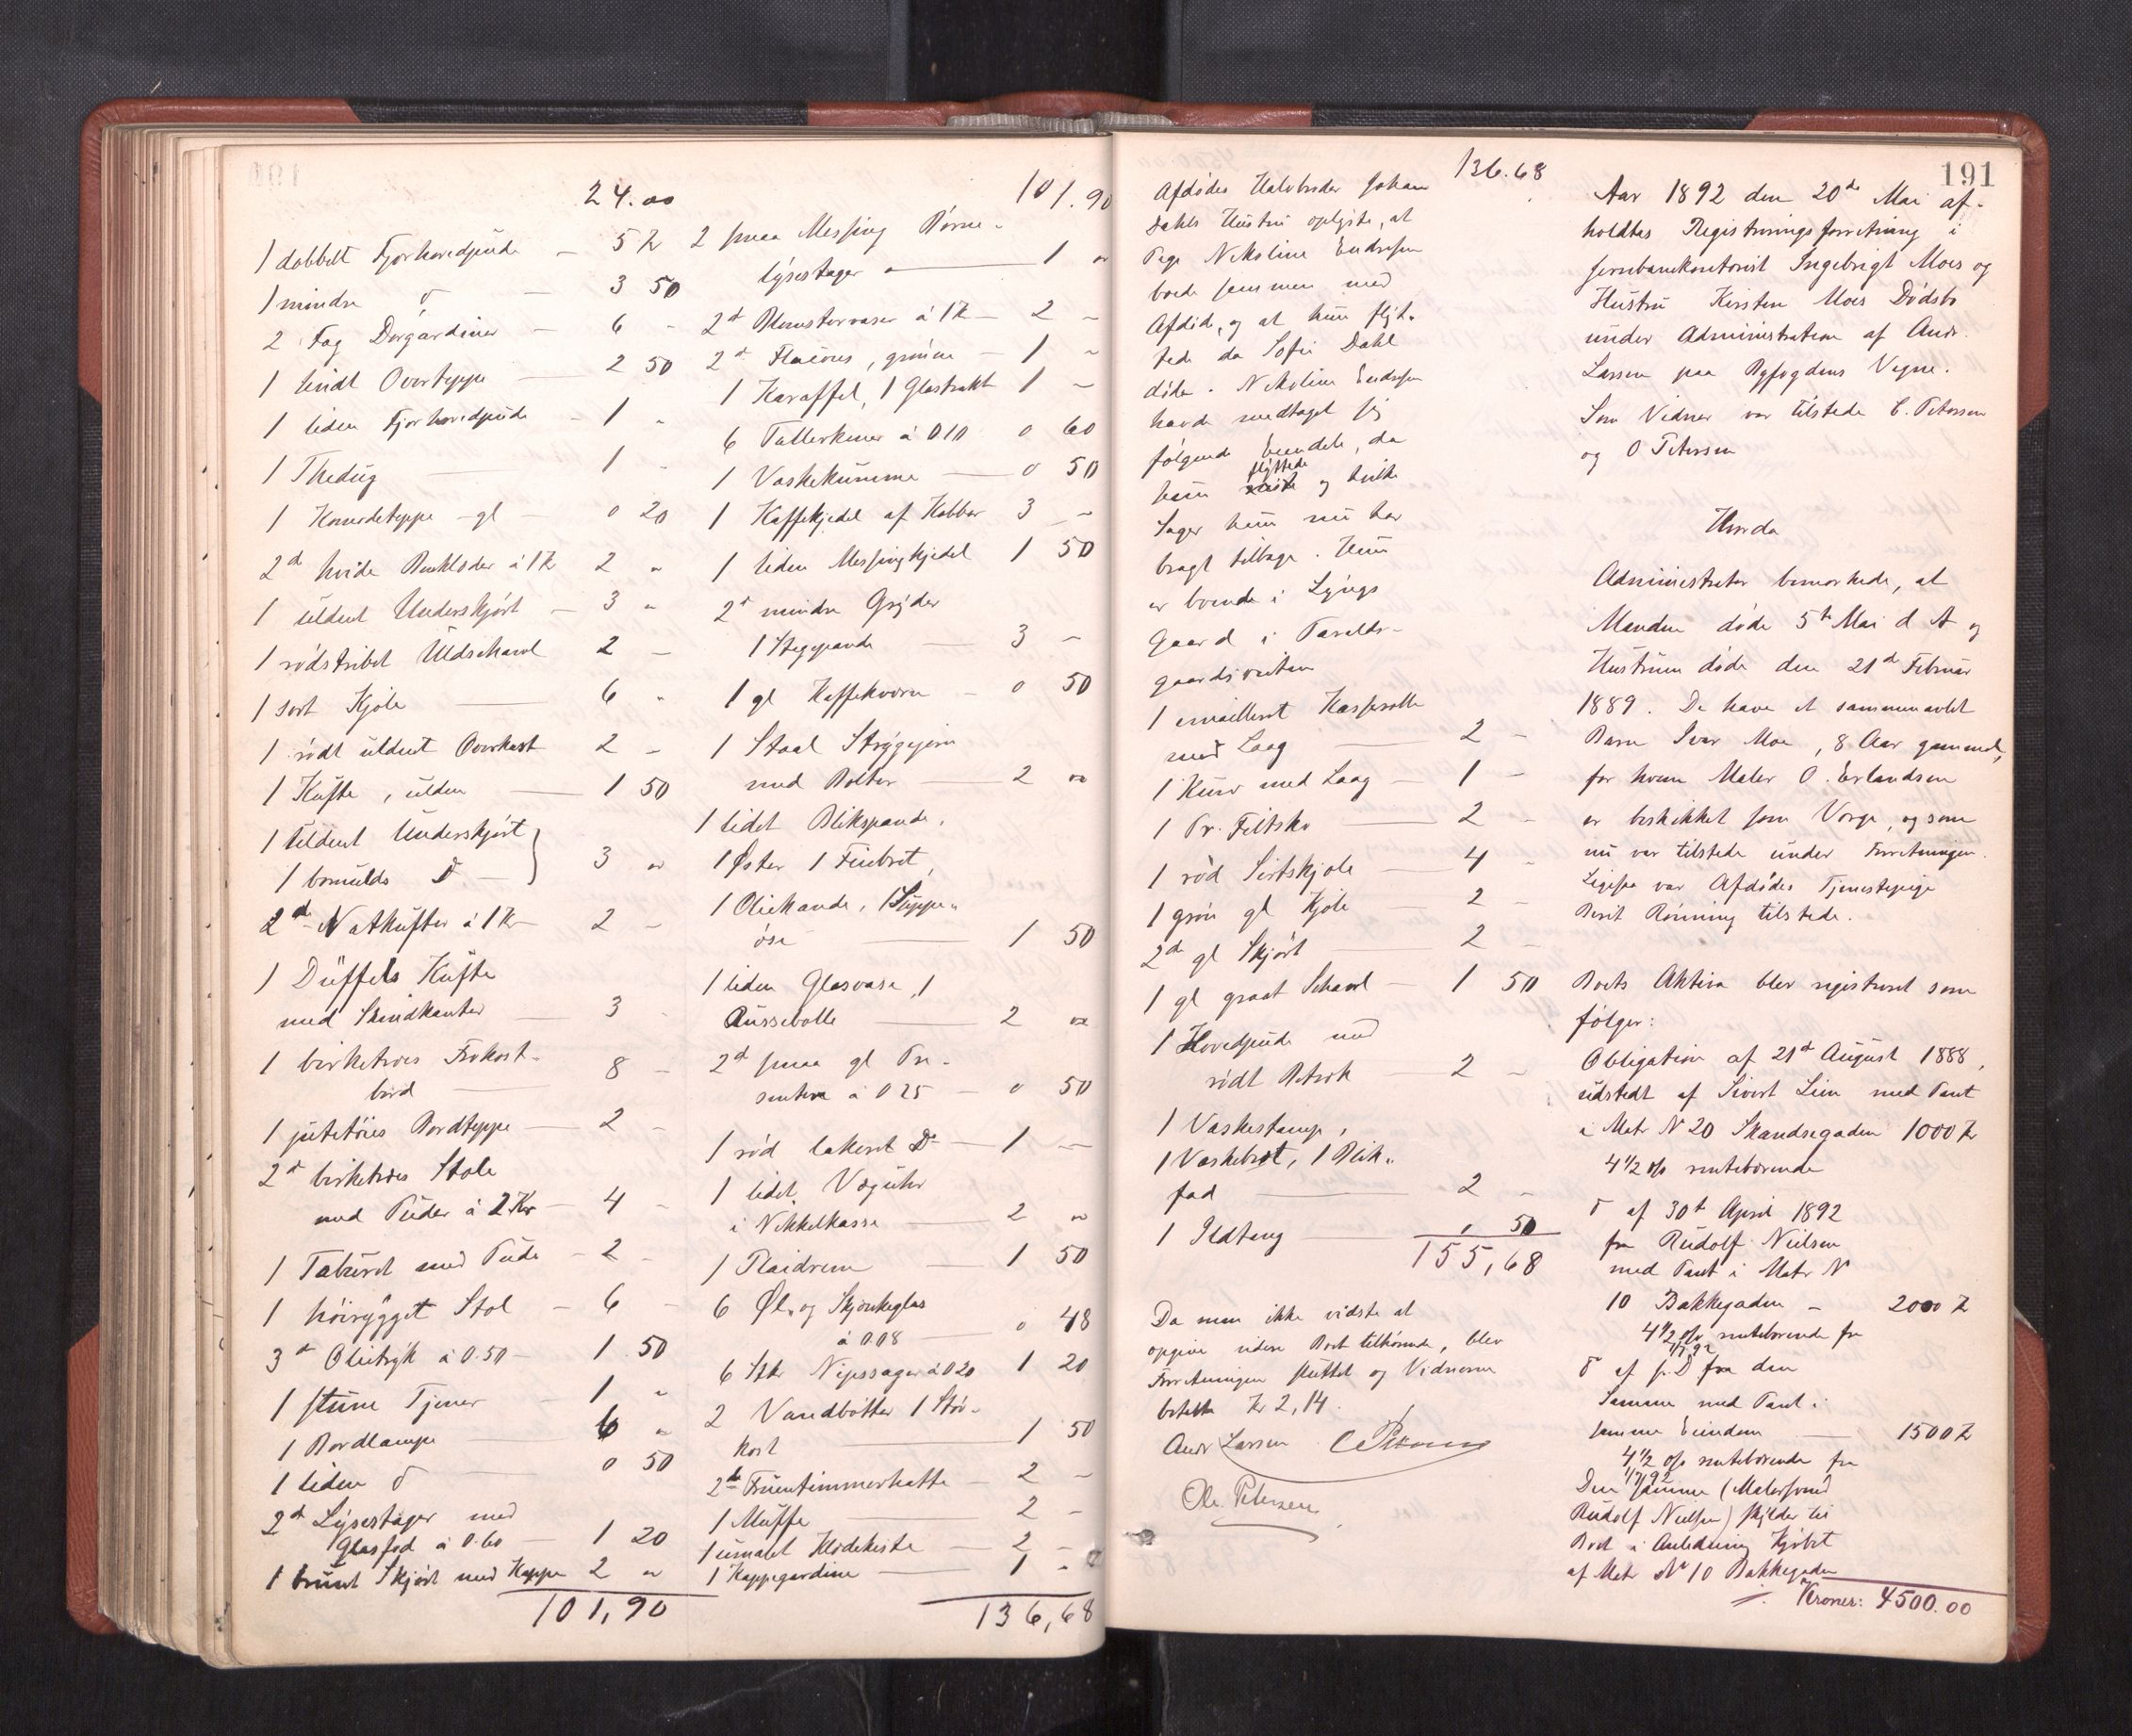 24.00
1 dobbelt Fjærhovedpude — 5 Kr
1 mindre do — 3 50
2 Fag Dørgardiner — 6 -
1 uldt Overteppe — 2 50
1 liden Fjærhovedpude — 1 -
1 Thedug — 1 -
1 Komodeteppe gl — 0 20
2de hvide Benklæder à 1 Kr 2 -
1 uldent Underskjørt — 3 -
1 rødstribet Uldschavl 2 -
1 sort Kjole — 6 -
1 rødt uldent Overkast 2 -
1 Kufte, ulden — 1 50
1 uldent Underskjørt
1 bomulds Do — 3 -
2de Natkufter à 1 Kr 2 -
1 Düffels Kufte
med Skindkanter — 3 -
1 birketræes Frokost-
bord — 8 -
1 jutetøies Bordteppe — 2 -
2de birketræes Stole
med Puder à 2 Kr — 4 -
1 Taburet med Pude — 2 -
1 høirygget Stol — 6 -
3de Olietryk à 0.50 — 1 50
1 stum Tjener — 1 -
1 Bordlampe — 6 -
1 liden do — 0 50
2de Lysestager med
Glasfod à 0.60 — 1 20
1 brunt Skjørt med Kappe 2 -
101,90
101.90
2 smaa Messing Børne-
lysestager — 1 -
2de Blomstervaser à 1 Kr — 2 -
2de Flacons, grønne — 1 -
1 Karaffel, 1 Glastrakt 1 -
6 Tallerkener à 010 0 60
1 Vaskekumme — 0 50
1 Kaffekjedel af Kobber 3 -
1 liden Messingkjedel 1 50
2de mindre Gryder
1 Stegepande — 3 -
1 gl Kaffekværn — 0 50
1 Staal Strygejern
med Bolter — 2 -
1 lidet Blikspande,
1 Øster 1 Fiebret,
1 Oliekande, 1 Suppe-
øse — 1 50
1 liden Glasvase, 1
Punssebolle — 2 -
2de smaa gl Pre-
senter à 0 25 — 0 50
1 rød lakeret Do — 1 -
1 lidet Væguhr
i Nikkelkasse — 2 -
1 Plaidrem — 1 50
6 Øl- og Skjænkeglas
à 0.08 — 0 48
6 Stkr Nipssager à 020 1 20
2 Vandbøtter 1 Støv-
kost — 1 50
2de Fruentimmerhatte — 2 -
1 Muffe — 2 -
1 umalet Klædekiste — 2 -
1 Kappegardine — 1 -
136,68
136.68
Afdødes Halvbroder Johan
Dahls Hustru oplyste, at
Pige Nikoline Endresen
boede sammen med
Afdøde, og at hun flyt-
tede da Sofie Dahl
døde. Nikoline Endresen
havde medtaget sig
følgende Eiendele, da
hun flyttede og hvilke
Sager hun nu har
bragt tilbage. Hun
er boende i Lyngs
Gaard i Taralds-
gaardsveiten
1 emailleret Kasserolle
med Laag — 2 -
1 Kurv med Laag — 1 -
1 Pr. Filtsko — 2 -
1 rød Sirtskjole — 4 -
1 grøn gl Kjole — 2 -
2de gl Skjørt — 2 -
1 gl graat Schavl — 1 50
1 Hovedpude med
rødt Betræk — 2 -
1 Vaskestamp,
1 Vaskebret, 1 Blik-
fad — 2 -
1 Ildtang — , 50
155,68
Da man ikke vidste at
opgive videre Boet tilhørende, blev
Forretningen sluttet og Vidnerne
betalt Kr 2,14.
Andr Larsen C Petersen
Ole Petersen
191
Aar 1892 den 20de Mai af-
holdtes Registreringsforretning i
Jernbanekontorist Ingebrigt Moes og
Hustru Kirsten Moes Dødsbo
under Administration af Andr.
Larsen paa Byfogdens Vegne.
Som Vidner var tilstede C. Petersen
og O Petersen
Hvorda
Administrator bemærkede, at
Manden døde 5te Mai d A og
Hustruen døde den 21de Februar
1889. De have et sammenavlet
Barn Ivar Moe, 8 Aar gammel,
for hvem Maler O. Erlandsen
er beskikket som Værge, og som
nu var tilstede under Forretningen.
Ligesaa var Afdødes Tjenestepige
Berit Rønning tilstede.
Boets Aktiva blev registreret som
følger:
Obligation af 21de August 1888,
udstedt af Sivert Lien med Pant
i Matr No 20 Skandsegaden 1000 Kr
4 1/2 o/o rentebærende
do af 30te April 1892
fra Rudolf Nielsen
med Pant i Matr No
10 Bakkegaden — 2000 Kr
4 1/2 o/o rentebærende fra
1/7 92
do af s. D fra den
Samme med Pant i
samme Eiendom — 1500 Kr
4 1/2 o/o rentebærende fra
1/7 92
Den Samme (Malersvend
Rudolf Nielsen) skylder til
Boet i Anledning Kjøbet
af Matr No 10 Bakkegaden
Kroner: 4500.00